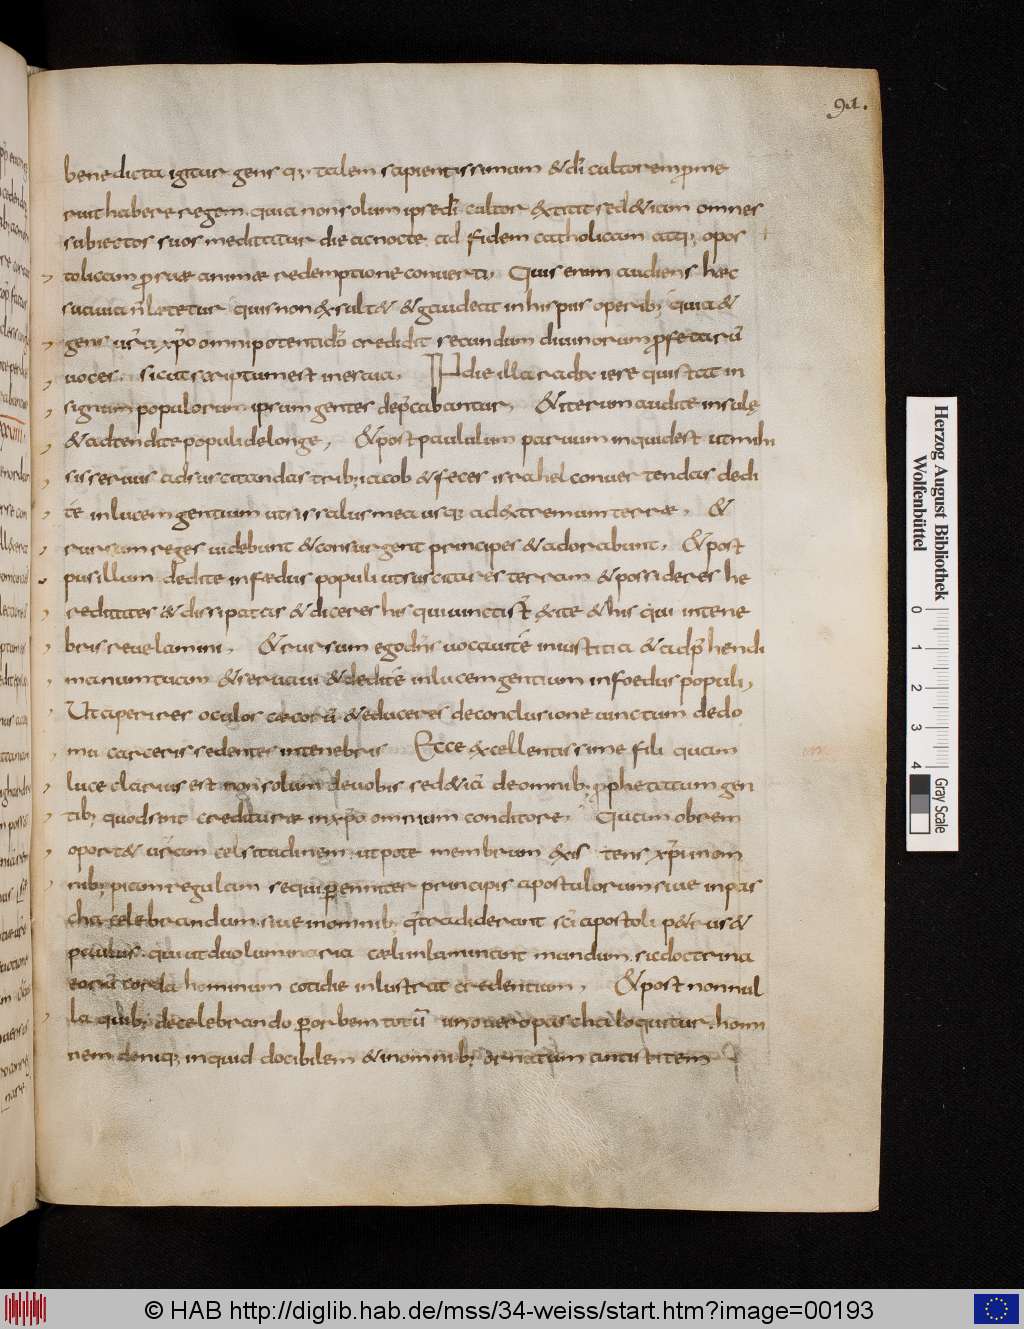 91.
benedicta igitur gens q; talem sapientissimum & dī cultorem pme
ruit habere regem quia non solum ipse dī cultor extitit sed & iam omnes
subiectos suos meditatur die ac nocte ad fidem catholicam atq; apos
tolicam p suae animae redemptione converti, Quis enim audiens haec
suavia n̄ laetetur quis non exsultet & gaudeat in his piis operib; quia &
gens vr̄a xp̄o omnipotenti dō credidit secundum divinorum pfetarū
voces. sicut scriptum est in esaia. In die illa radix iesse qui stat in
signum populorum ipsum gentes dep̄cabantur, & iterum audite insulę
& adtendite populi de longe, & post paululum parvum inquid est ut mihi
sis servus ad suscitandas trib; iacob & feces israhel convertendas dedi
te in lucem gentium ut sis salus mea usq; ad extremum terrae. &
rursum reges videbunt & consurgent principes & adorabunt. & post
pusillum dedi te in foedus populi ut suscitares terram & possideres he
reditates & dissipatas & diceres his qui vincti st̄ exite & his qui in tene
bris revelamini. & rursum ego dn̄s vocavi te in iustitia & adp̄hendi
manum tuam & servavi & dedi te in lucem gentium in foedus populi,
Ut aperires oculos caecorū & educeres de conclusione vinctum de do
mu carceris sedentes in tenebris Ecce excellentissime fili quam
luce clarius est non solum de vobis sed & iā de omnib; pphetatum gen
tib; quod sint crediturae in xp̄o omnium conditore. Quam obrem
oportet vr̄am celsitudinem utpote membrum existens xp̄i in om
nib; piam regulam sequi penniter principis apostolorum sive in pas
cha celebrandum sive in omnib; q̄ tradiderunt sc̄i apostoli petrus &
paulus. qui ut duo luminaria caeli inluminant mundum sic doctrina
eorū corda hominum cotidie inlustrat credentium. & post nonnul
la quib; de celebrando p orbem totū uno vero pascha loquitur. homi
nem deniq; inquid docibilem & in omnib; ornatum antistitem
Herzog August Bibliothek
Wolfenbüttel
0 1 2 3 4
Gray Scale
© HAB http://diglib.hab.de/mss/34-weiss/start.htm?image=00193